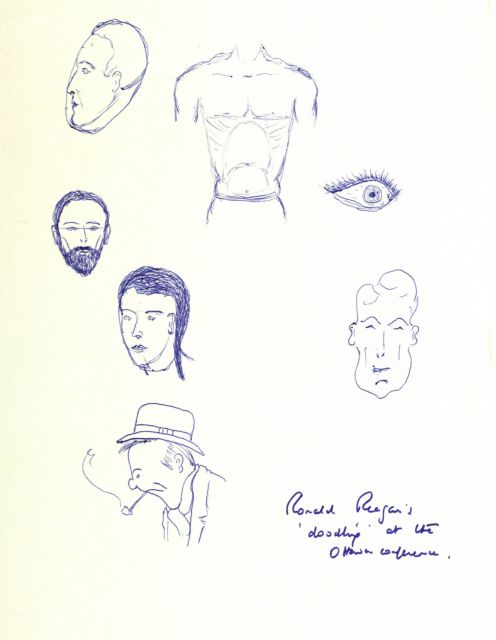 Ronald Reagan's
'doodling' at the
Ottawa conference.